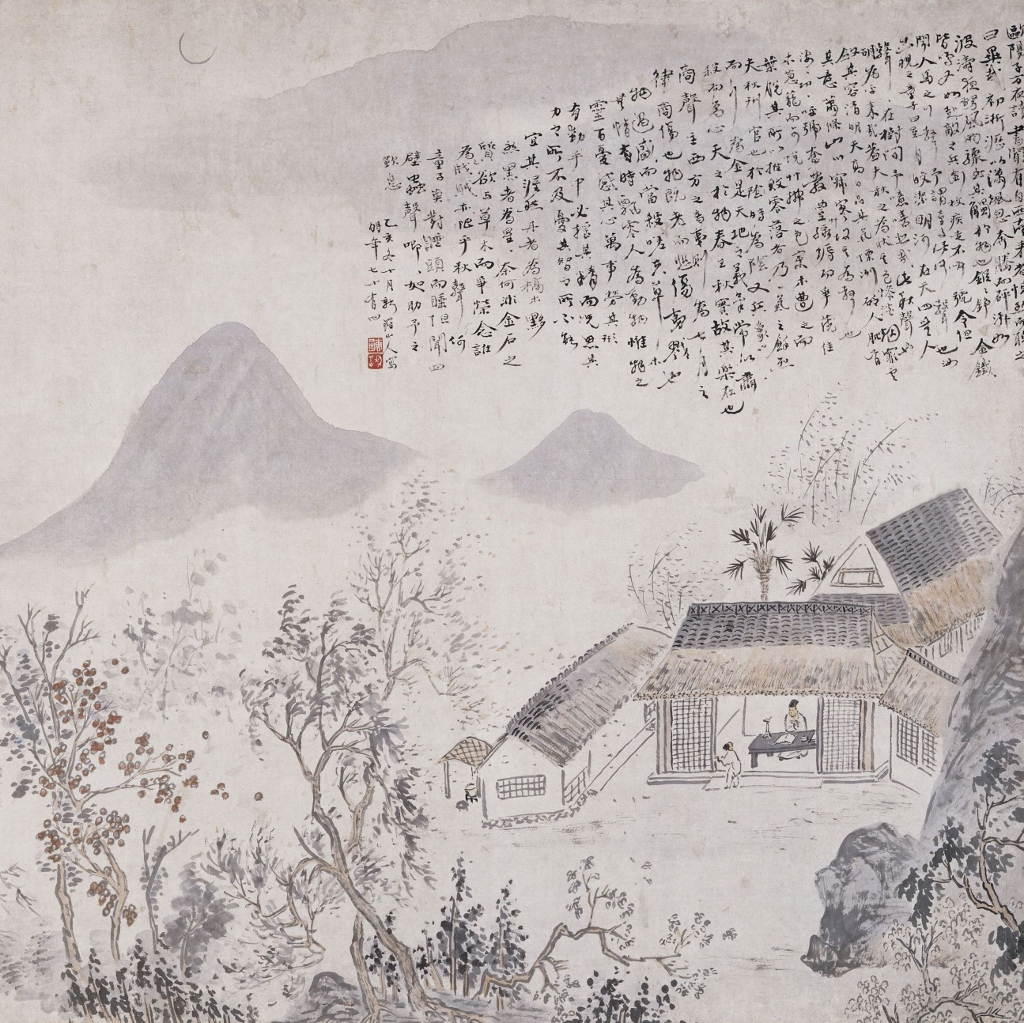 歐陽子方夜讀書聞有聲自西南來者悚然而聽之
曰異哉初淅瀝以瀟颯忽奔騰而砰湃如
波濤夜驚風雨驟至其觸於物也鏦鏦錚錚金鐵
皆鳴又如赴敵之兵銜枚疾走不聞號令但
聞人馬之行聲予謂童子此何聲也汝
出視之童子曰星月皎潔明河在天四無人
聲聲在樹間予曰噫嘻悲哉此秋聲也
胡為乎來哉蓋夫秋之為狀也其色慘淡煙霏雲
斂其容清明天高日晶其氣慄冽砭人肌骨
其意蕭條山川寂寥故其為聲也
淒淒切切呼號奮發豐草綠縟而爭茂佳
木蔥籠而可悅草拂之而色變木遭之而
葉脫其所以摧敗零落者乃一氣之餘烈
夫秋刑官也於時為陰又兵象也
於行為金是謂天地之義氣常以肅
殺而為心天之於物春生秋實故其在樂也
商聲主西方之音夷則為七月之
律商傷也物既老而悲傷夷戮也
物過盛而當殺嗟夫草木
無情有時飄零人為動物惟物之
靈百憂感其心萬事勞其形
有動乎中必搖其精而況思其
力之所不及憂其智之所不能
宜其渥然丹者為槁木黟
然黑者為星星奈何非金石之
質欲與草木而爭榮念誰
為戕賊亦何恨乎秋聲
童子莫對垂頭而睡但聞四
壁蟲聲唧唧如助予之
歎息
乙亥冬十月新羅山人寫
時年七十有四